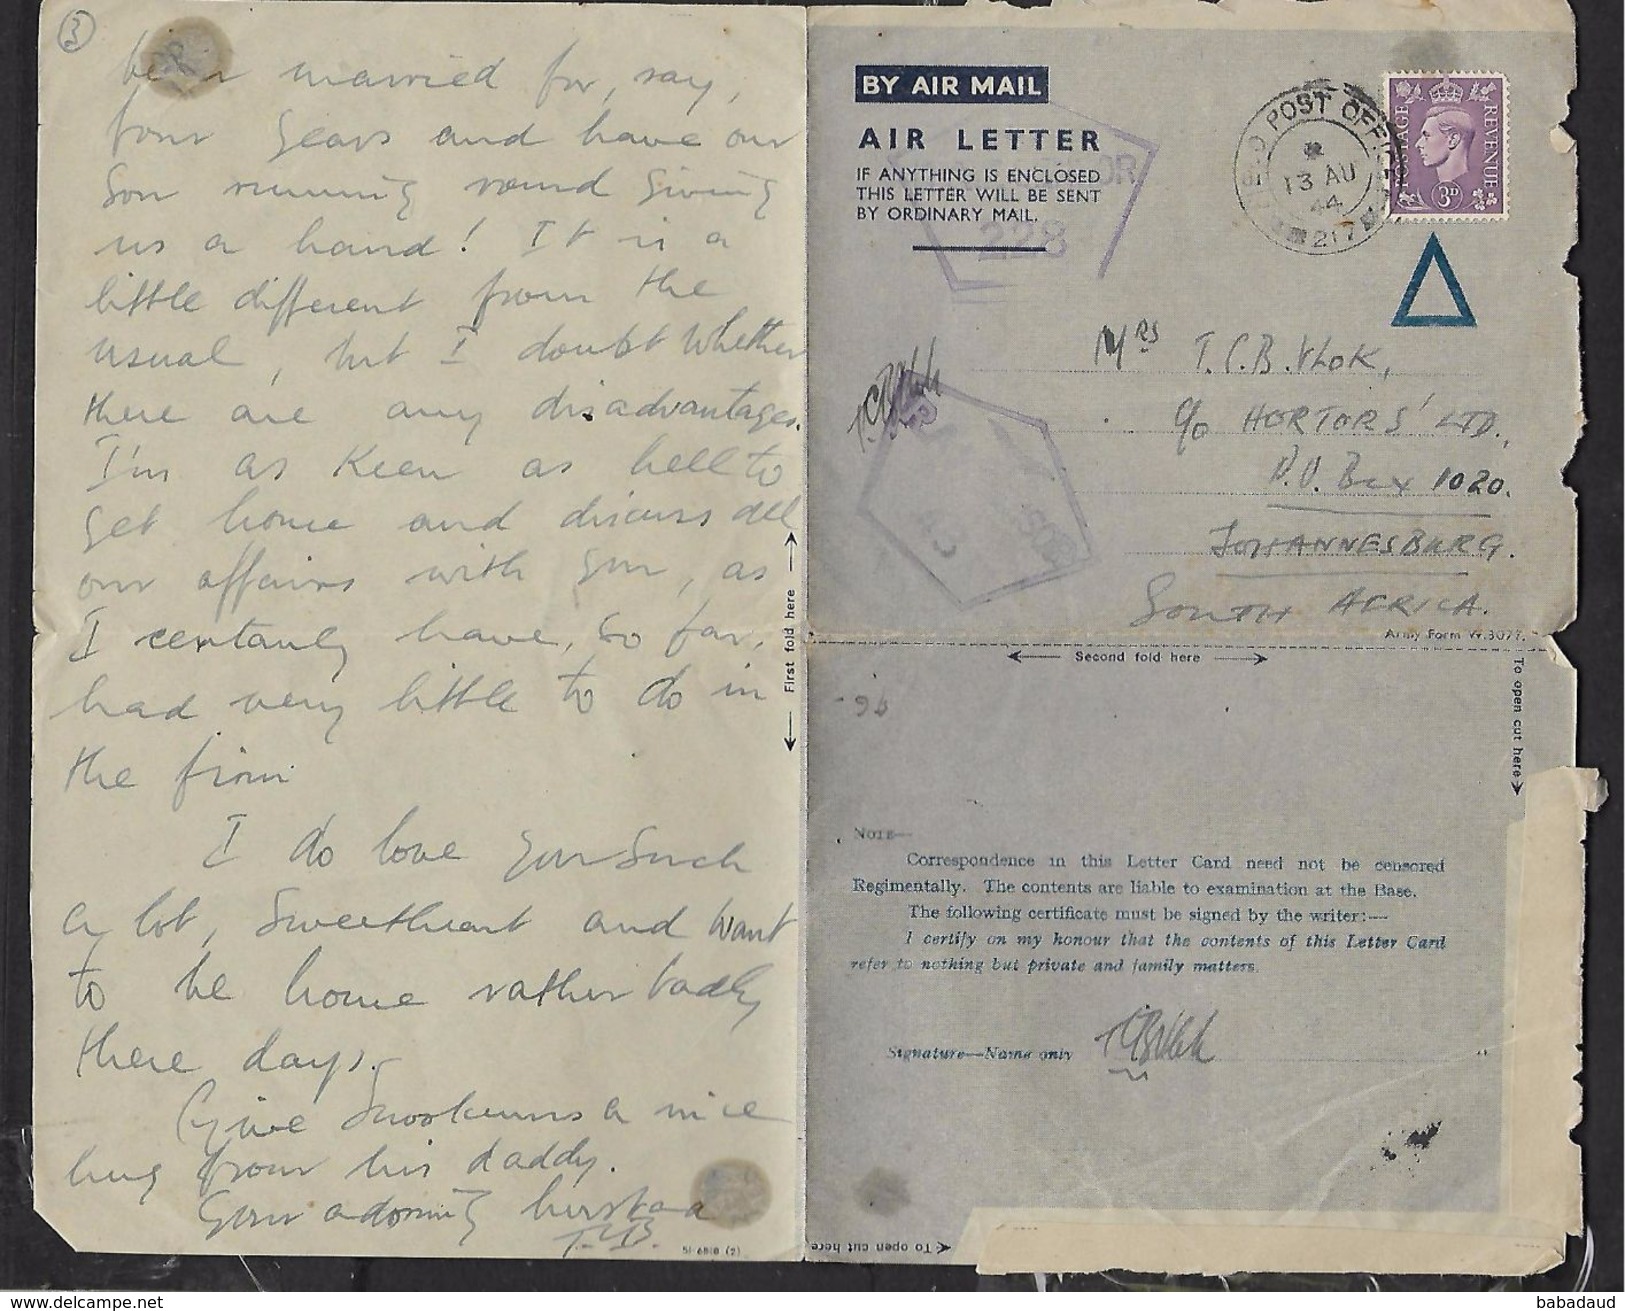 3
married for, say,
four years and have our
son running round giving
us a hand! It is a
little different from the
usual, but I doubt whether
there are any disadvantages.
I'm as keen as hell to
get home and discuss all
our affairs with you, as
I certainly have, so far,
had very little to do in
the firm
I do love you such
a lot, sweetheart and want
to be home rather badly
these days.
Give Snookums a nice
hug from his daddy.
Your adoring
51-6818 (2)
First fold here
BY AIR MAIL
AIR LETTER
IF ANYTHING IS ENCLOSED
THIS LETTER WILL BE SENT
BY ORDINARY MAIL.
228
POST OFFICE
13 AU
44
217
POSTAGE
REVENUE
3D
Mrs T.C.B. Vlok,
c/o HORTORS' LTD.,
P.O. Box 1020.
JOHANNESBURG.
SOUTH AFRICA.
Army Form W.3077.
Second fold here
To open cut here
NOTE—
Correspondence in this Letter Card need not be censored
Regimentally. The contents are liable to examination at the Base.
The following certificate must be signed by the writer:—
I certify on my honour that the contents of this Letter Card
refer to nothing but private and family matters.
Signature—Name only TCBVlok
To open cut here
delcampe.net
babadaud